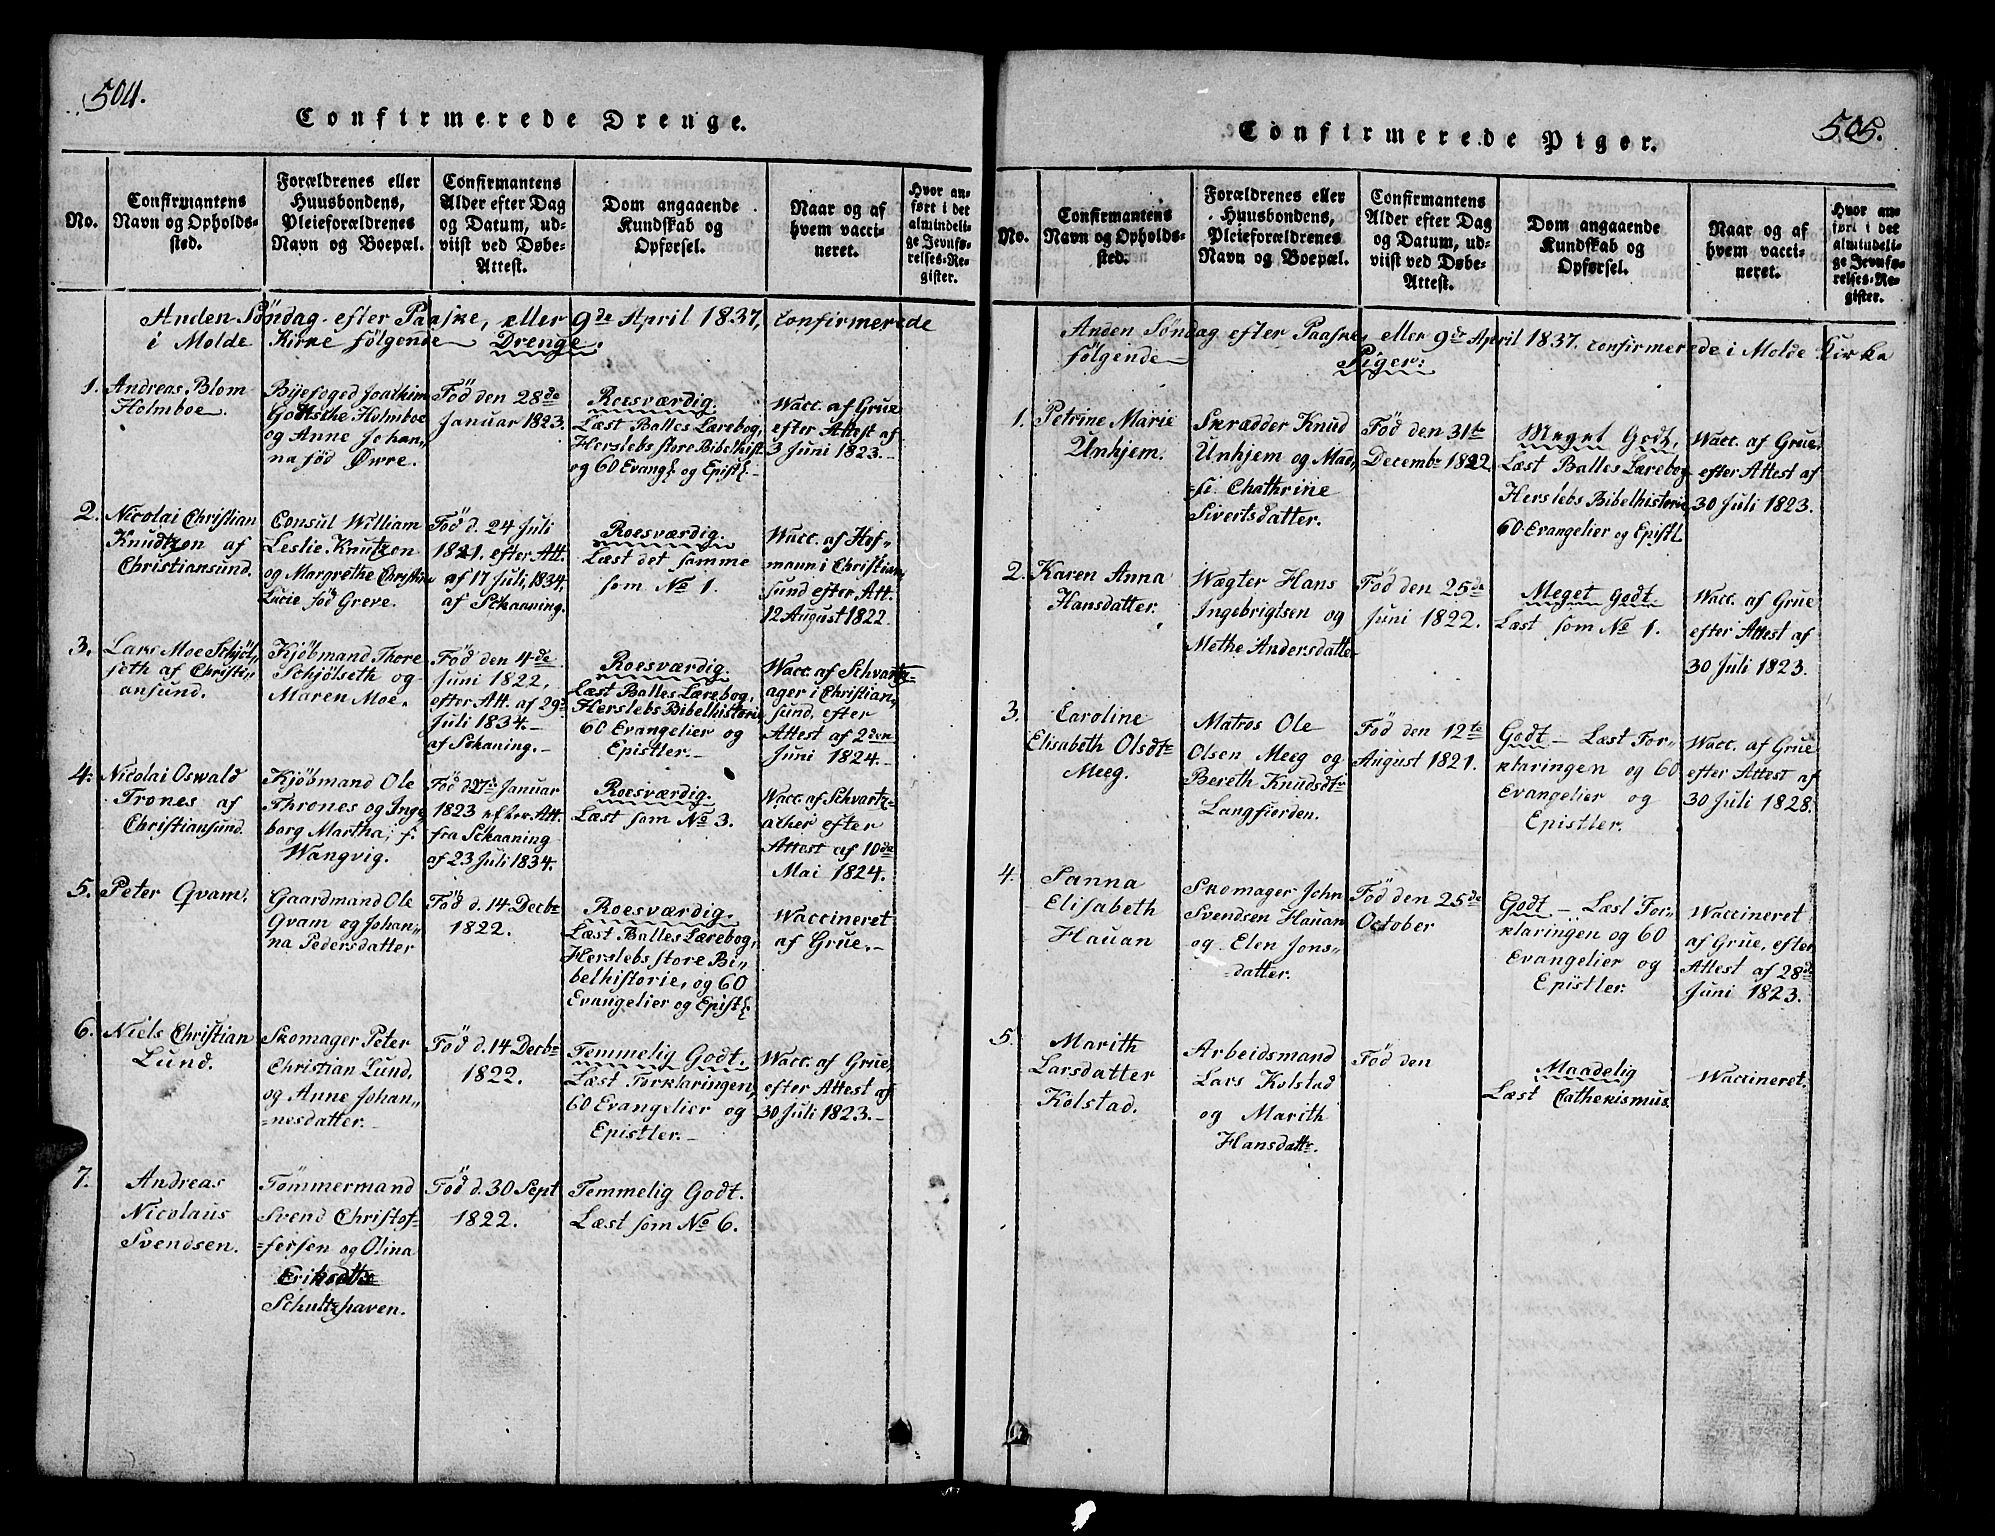 504.
Confirmerede Drenge.
No.
Confirmantens
Navn og Opholds-
sted.
Forældrenes eller
Huusbondens,
Pleieforældrenes
Navn og Boepæl.
Confirmantens
Alder efter Dag
og Datum, ud-
viist ved Døbe-
Attest.
Dom angaaende
Kundskab og
Opførsel.
Naar og af
hvem vacci-
neret.
Hvor an-
ført i det
almindeli-
ge Jevnfø-
relses-Re-
gister.
Anden Söndag efter Paaske, eller 9de April 1837, confirmerede
i Molde Kirke følgende Drenge:
1. Andreas Blom
Holmboe.
Byefoged Joathim
Godtsche Holmboe
og Anne Johan„
na fød Øvre.
Fød den 28de
Januar 1823.
Roesværdig.
Læst Balles Lærebog,
Herslebs store Bibelhist
og 60 Evang og Epist
Wacc. af Grue
efter Attest af
3 Juni 1823.
2. Nicolai Christian
Knudtzon af
Christiansund.
Consul William
Leslie Knutzon
og Margrethe Christine
Lucie fød Greve.
Fød d. 24 Juli
1821. efter Att.
af 17 Juli, 1834,
af Schaaning.
Roesværdig.
Læst det samme
som No 1.
Wacc. af Hof„
mann i Christian„
sund efter Att.
12 August 1822.
3. Lars Moe Schjöl„
seth af Christi„
ansund.
Kjöbmand Thore
Schjölseth og
Maren Moe.
Fød den 4de
Juni 1822,
efter Att. af 29d
Juli 1834.
af Schaning.
Roesværdig.
Læst Balles Lærebog,
Herslebs Bibelhistorie
60 Evangelier og
Epistler.
Wacc. af Schvartz„
ager i Christian„
sund, efter
Attest af 2den
Juni 1824.
4. Nicolai Oswald
Trones af
Christiansund.
Kjöbmand Ole
Thrones og Inge
borg Martha, f:
Wangvig.
Fød d 27de Januar
1823 efter Att
fra Schaaning
af 23 Juli 1834.
Roesværdig.
Læst som No 3.
Wacc. af Schvartz„
acher efter
Attest af 10de
Mai 1824.
5. Peter Qvam.
Gaardmand Ole
Qvam og Johan„
na Pedersdatter
Fød d. 14 Decbr
1822.
Roesværdig.
Læst Balles Lærebog,
Herslebs store Bi„
belhistorie, og 60
Evangelier og Epist
Waccineret
af Grue.
6. Niels Christian
Lund.
Skomager Peter
Christian Lund,
og Anne Johan„
nesdatter.
Fød d. 14 Decbr
1822.
Temmelig Godt.
Læst Forklaringen,
60 Evangelier og
Epistler.
Wacc. af Grue,
efter Attest af
30 Juli 1823.
7. Andreas
Nicolaus
Svendsen.
Tømmermand
Svend Christof=
fersen og Olina
Eriksdttr
Schultzhaven.
Fød d. 30 Sept
1822.
Temmelig Godt.
Læst som No 6.
505.
Confirmerede Piger.
No.
Confirmantens
Navn og Opholds-
sted.
Forældrenes eller
Huusbondens,
Pleieforældrenes
Navn og Boepæl.
Confirmantens
Alder efter Dag
og Datum, ud-
viist ved Døbe-
Attest.
Dom angaaende
Kundskab og
Opførsel.
Naar og af
hvem vacci-
neret.
Hvor an-
ført i det
almindeli-
ge Jevnfø-
relses-Re-
gister.
Anden Søndag efter Paaske, eller 9de April 1837. confirmerede i Molde Kirke
følgende Piger:
1. Petrine Marie
Unhjem.
Skrædder Knud
Unhjem og Mad„
si Chathrine
Sivertsdatter.
Fød den 31te
Decembr 1822
Meget Godt.
Læst Balles Lærebog
Herslebs Bibelhistorie
60 Evangelier og Epistl
Wacc. af Grue,
efter Attest af
30 Juli 1823.
2. Karen Anna
Hansdatter.
Wægter Hans
Ingebrigtsen og
Methe Andersdatter
Fød den 25de
Juni 1822.
Meget Godt.
Læst som No 1.
Wacc. af Grue
efter Attest af
30 Juli 1823.
3. Caroline
Elisabeth Olsdtr
Meeg.
Matros Ole
Olsen Meeg og
Bereth Knudsdtr
Langfiorden.
Fød den 12te
August 1821.
Godt — Læst For„
klaringen og 60
Evangelier og
Epistler.
Wacc. af Grue
efter Attest af
30 Juli 1828.
4. Sanna
Elisabeth
Hauan
Skomager John
Svendsen Hauan
og Elen Jons„
datter.
Fød den 25de
October
Godt — Læst For„
klaringen og 60
Evangelier og
Epistler.
Waccineret
af Grue, efter
Attest af 28de
Juni 1823.
5. Marith
Larsdatter
Kolstad.
Arbeidsmand
Lars Kolstad
og Marith
Hansdattr.
Fød den
Maadelig
Læst Cathekismus.
Waccineret.